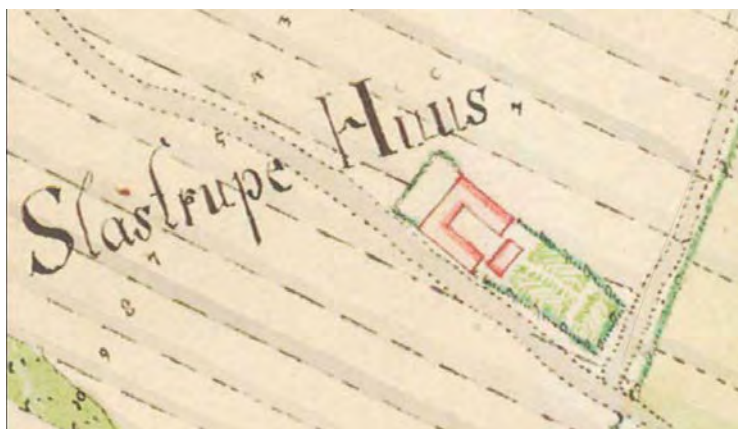 Slastrupe Huus.
3
4
5
7
7
8
9
10